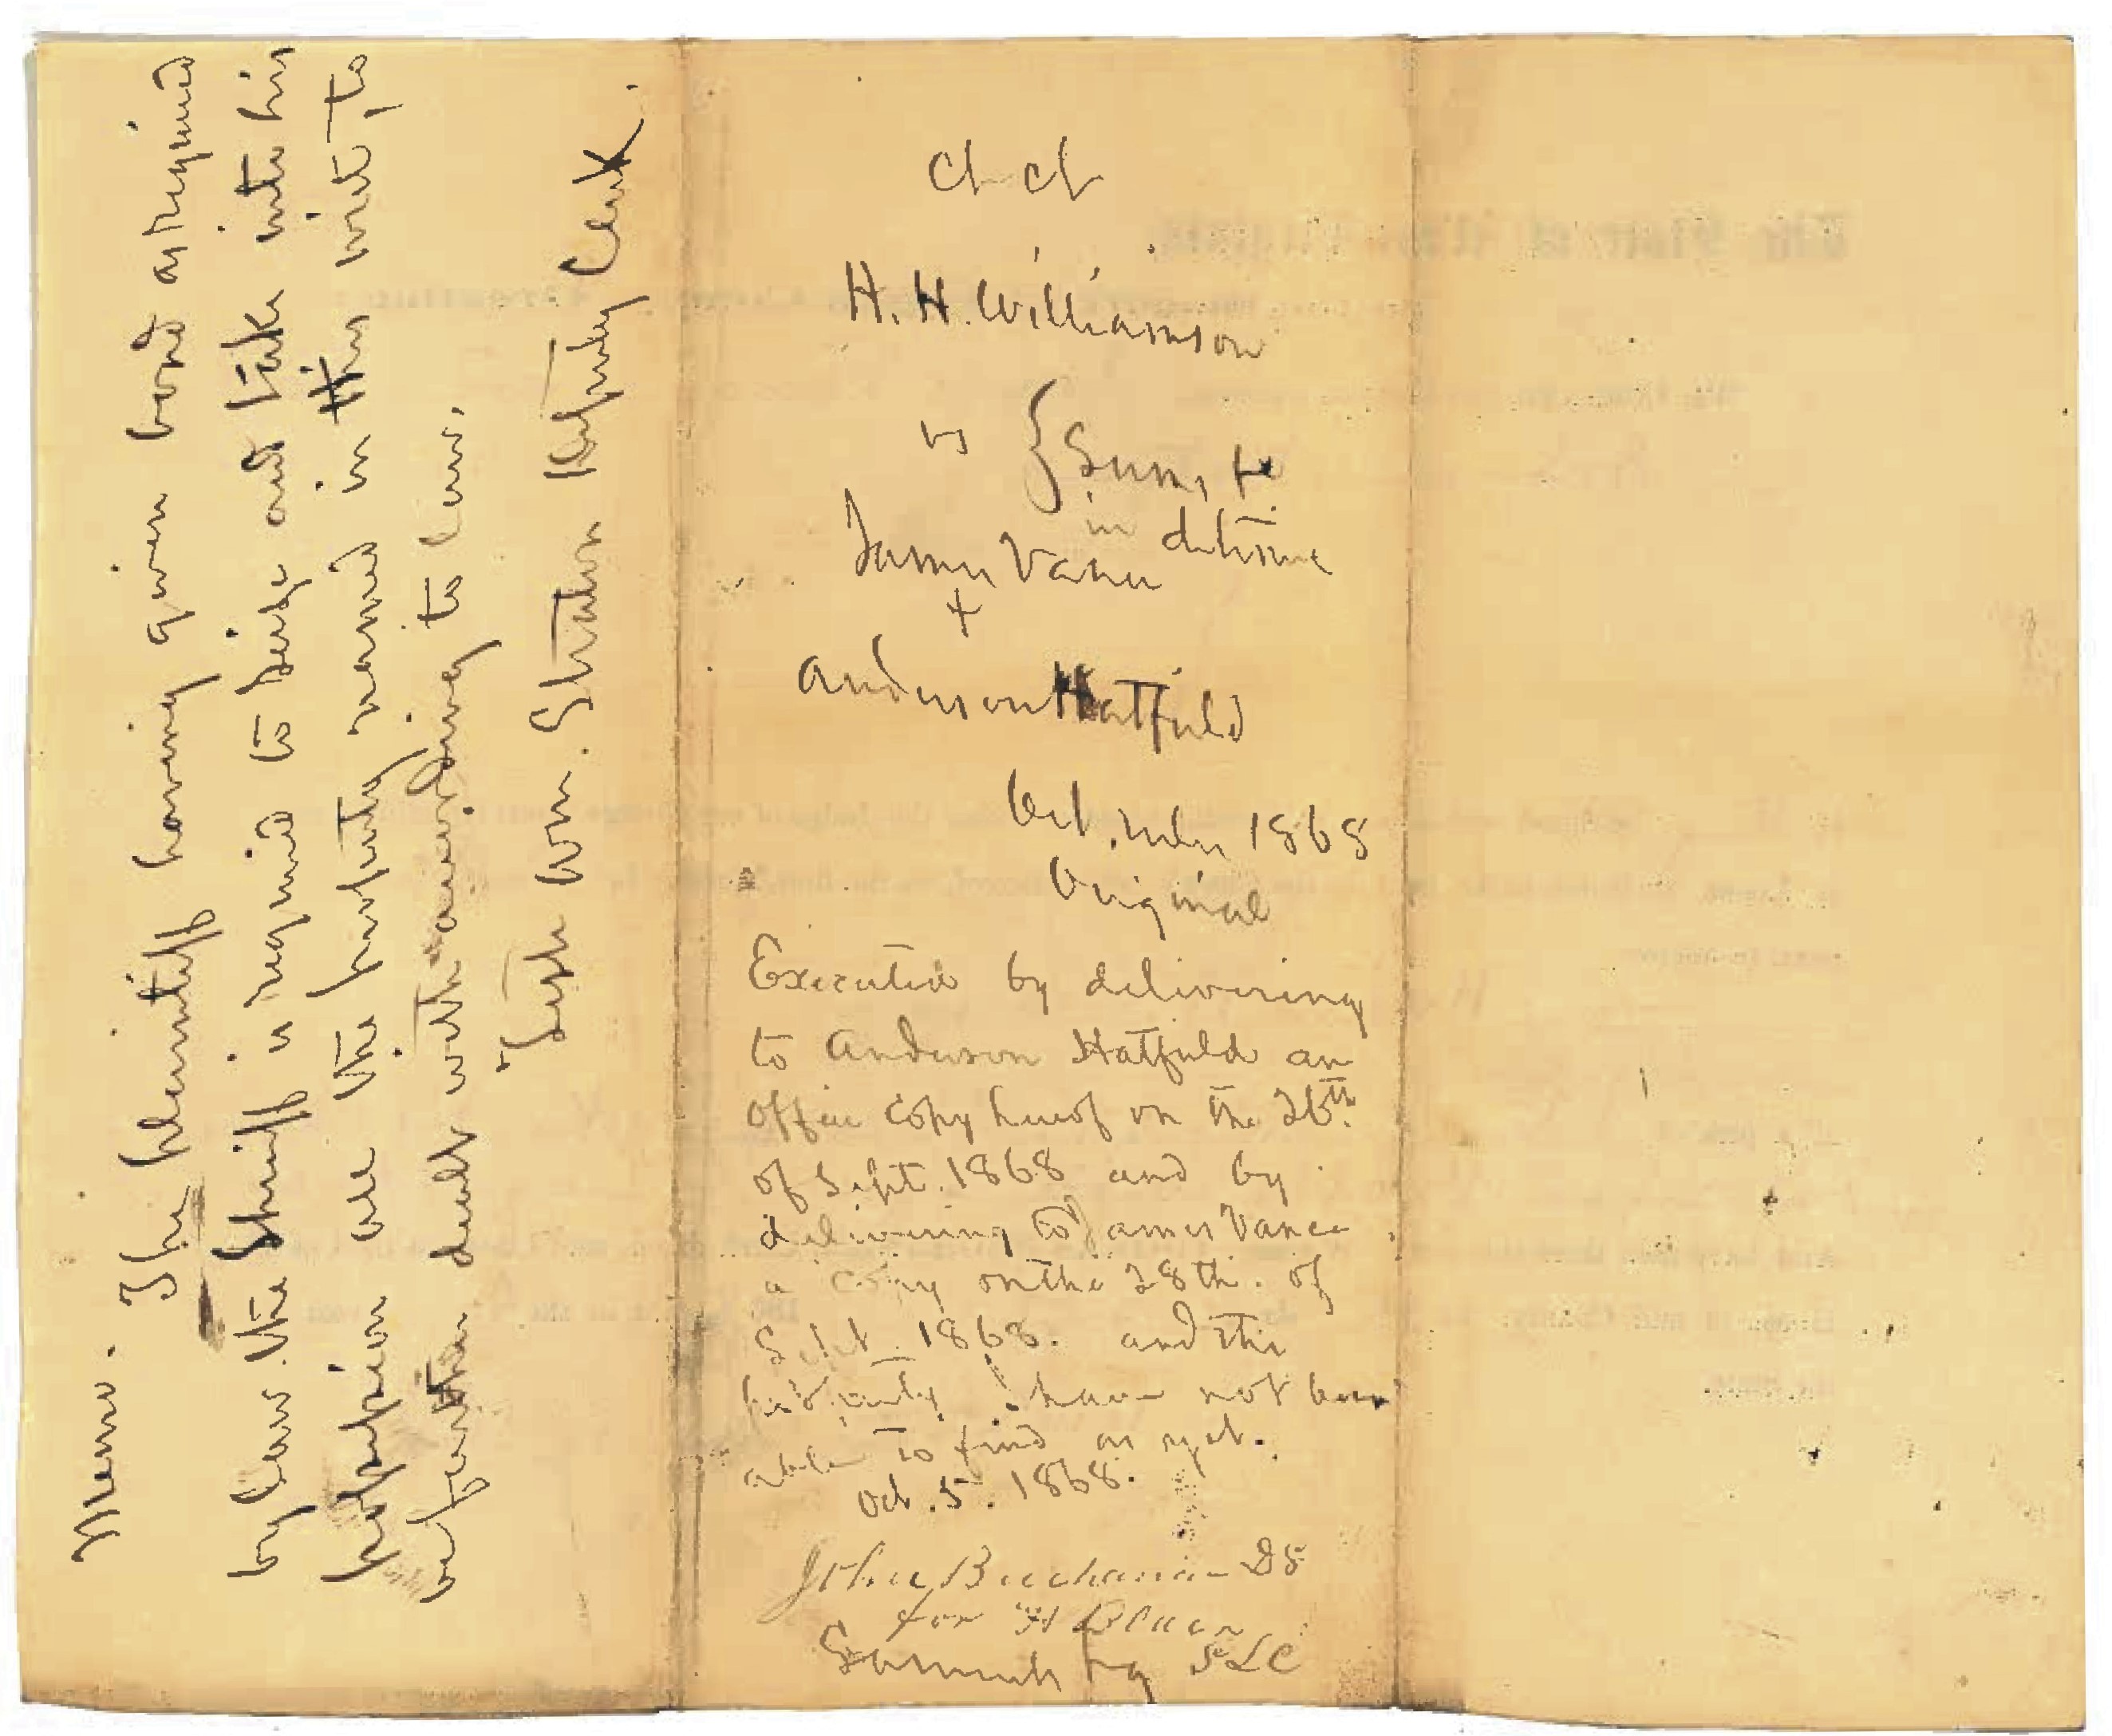 Memo. The plaintiff having given bond as required
by Law the Sheriff is required to seize and take into his
possession all the property named in this writ to
be further dealt with according to Law.
Teste Wm. Straton Deputy Clerk.
H. H. Williamson
vs { Sums, to
in detinue
James Vance
+
Anderson Hatfield
Oct. rules 1868
Original
Executed by delivering
to Anderson Hatfield an
office copy hereof on the 26th.
of Sept. 1868 and by
delivering to James Vance
a copy on the 28th. of
Sept. 1868. and the
property I have not been
able to find as yet.
Oct. 5. 1868.
John Buchanan DS
for
SLC